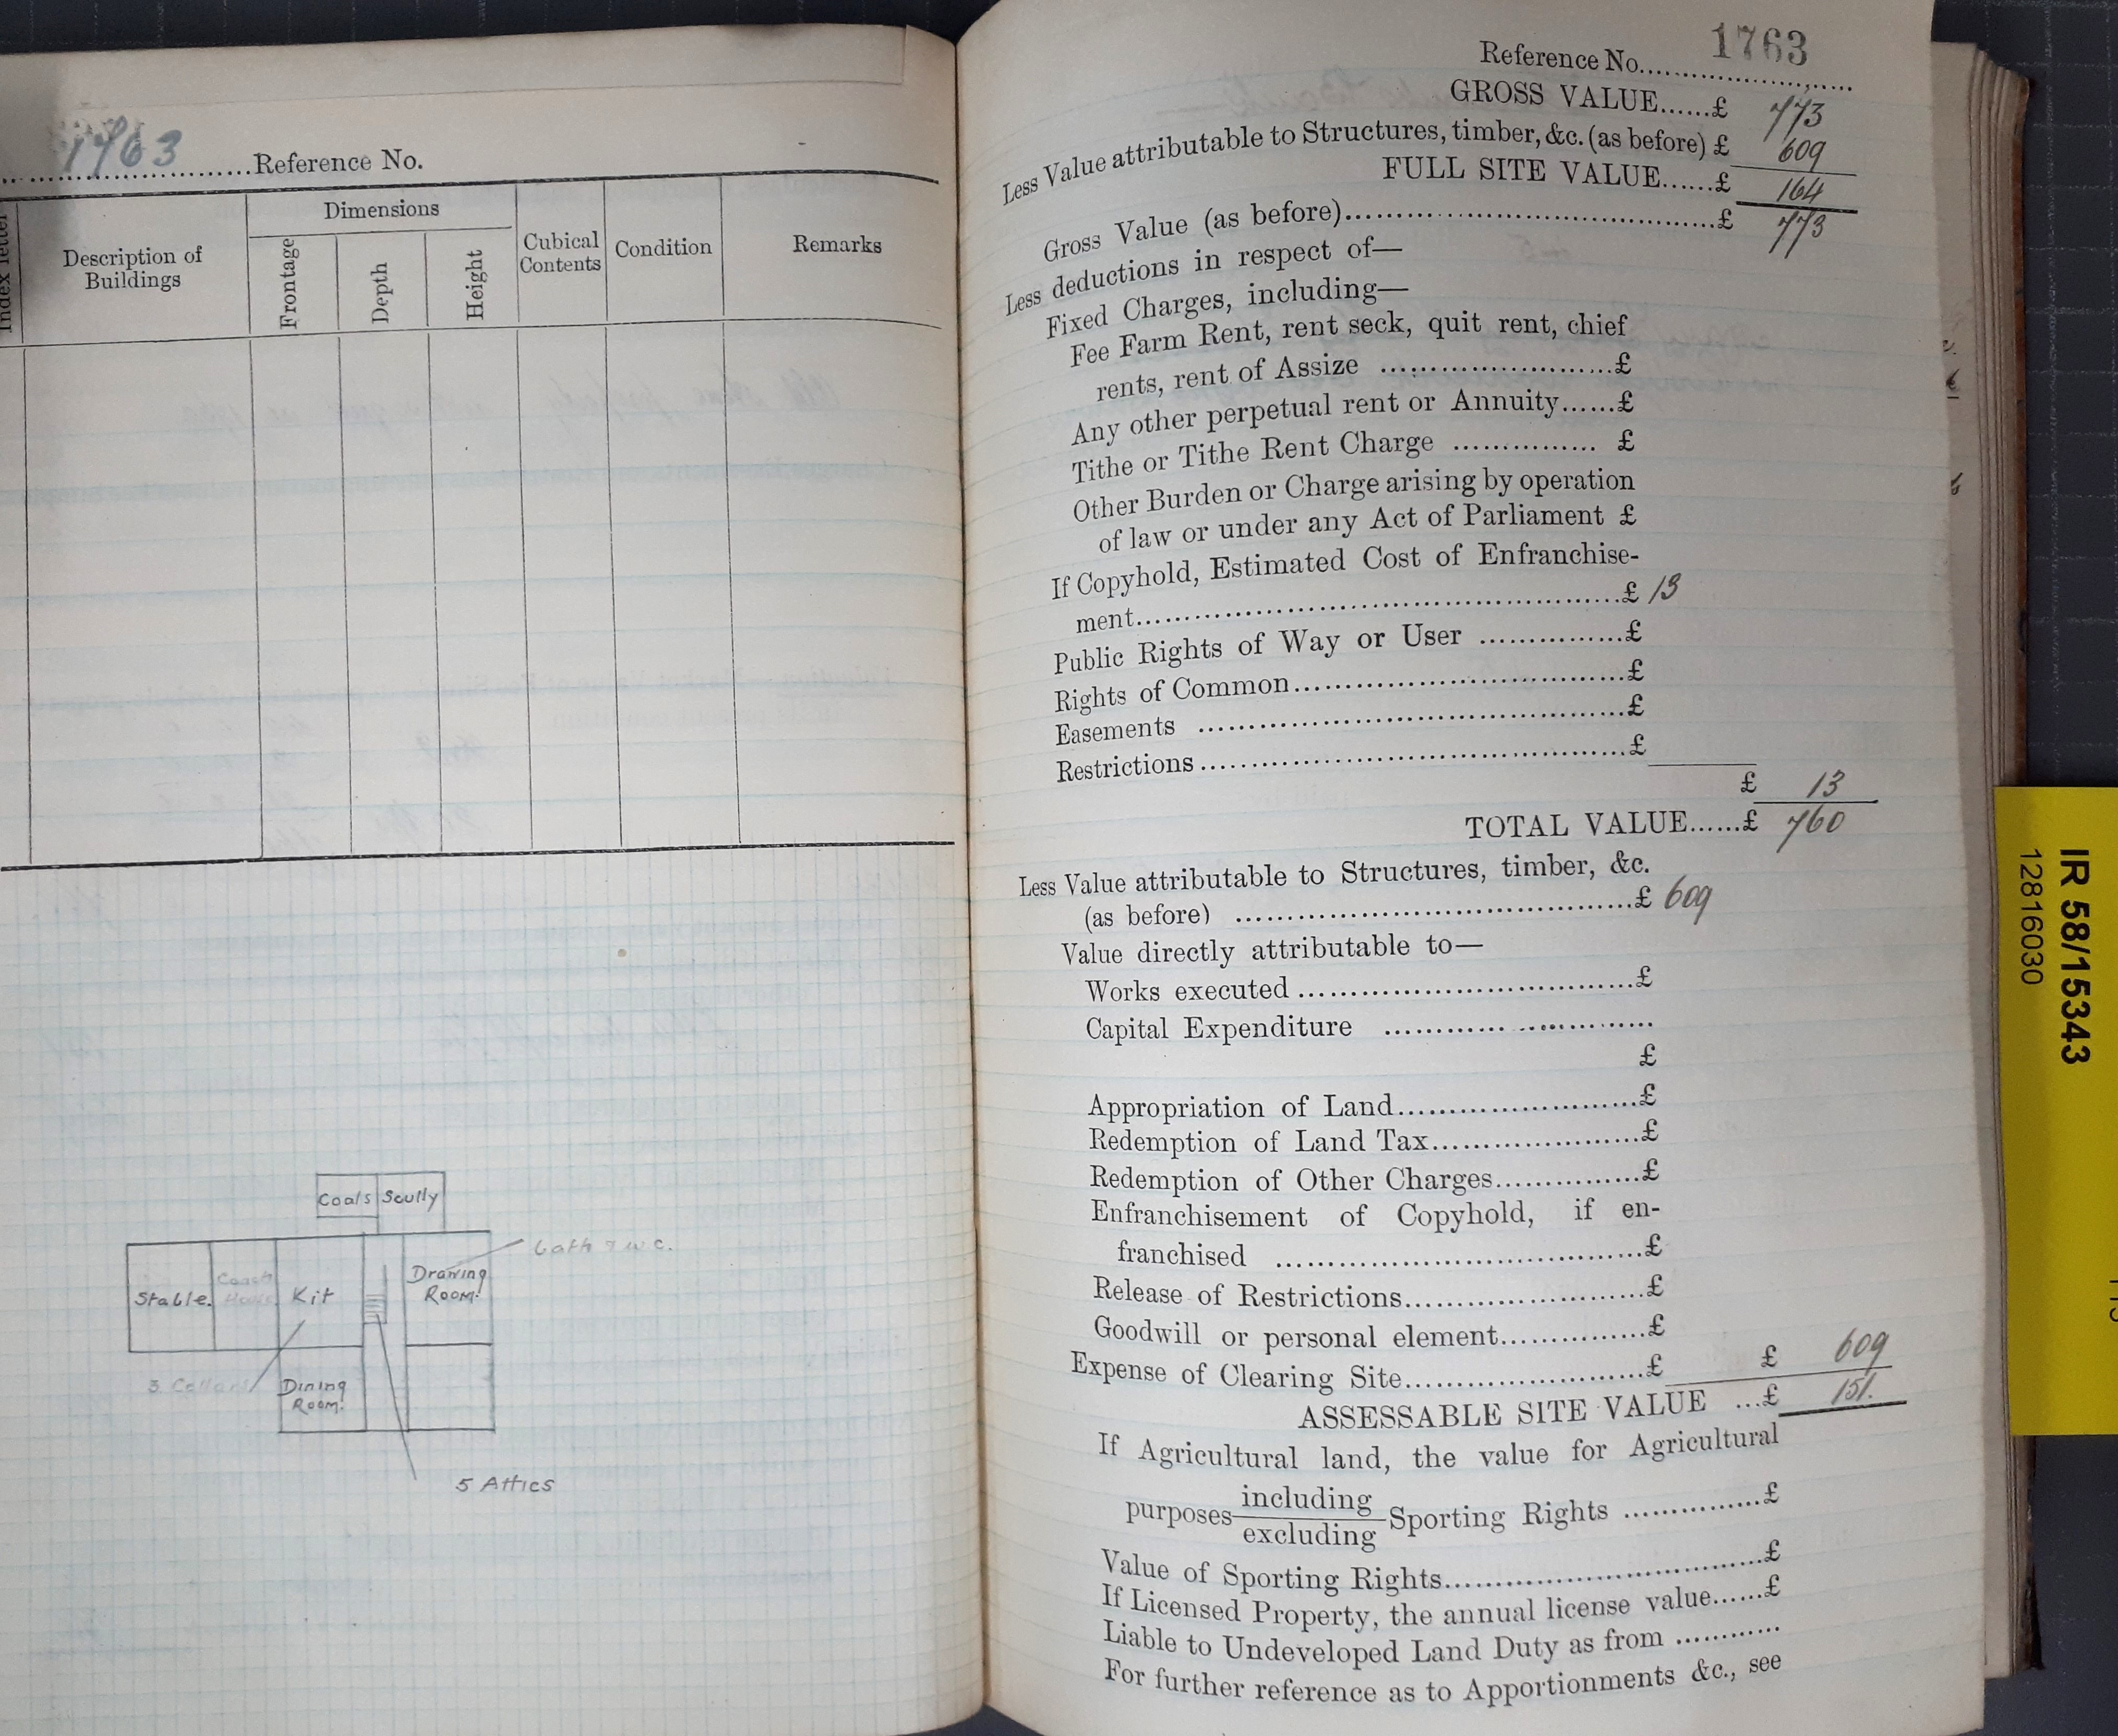 1763 ..........Reference No.
Index letter
Description of Buildings
Dimensions
Frontage
Depth
Height
Cubical Contents
Condition
Remarks
Coals
Scully
bath & w.c.
Stable.
Coach House
Kit
Drawing Room.
3 Cellars
Dining Room.
5 Attics
Reference No. 1763
GROSS VALUE......£ 773
Less Value attributable to Structures, timber, &c. (as before) £ 609
FULL SITE VALUE......£ 164
Gross Value (as before)..........£ 773
Less deductions in respect of—
Fixed Charges, including—
Fee Farm Rent, rent seck, quit rent, chief
rents, rent of Assize ..........£
Any other perpetual rent or Annuity......£
Tithe or Tithe Rent Charge .......... £
Other Burden or Charge arising by operation
of law or under any Act of Parliament £
If Copyhold, Estimated Cost of Enfranchise-
ment..........£ 13
Public Rights of Way or User ..........£
Rights of Common..........£
Easements ..........£
Restrictions..........£
£ 13
TOTAL VALUE......£ 760
Less Value attributable to Structures, timber, &c.
(as before) ..........£ 609
Value directly attributable to—
Works executed ..........£
Capital Expenditure ..........
£
Appropriation of Land..........£
Redemption of Land Tax..........£
Redemption of Other Charges..........£
Enfranchisement of Copyhold, if en-
franchised ..........£
Release of Restrictions..........£
Goodwill or personal element..........£
Expense of Clearing Site..........£ £ 609
ASSESSABLE SITE VALUE ...£ 151.
If Agricultural land, the value for Agricultural
purposes including
excluding Sporting Rights ..........£
Value of Sporting Rights..........£
If Licensed Property, the annual license value......£
Liable to Undeveloped Land Duty as from ..........
For further reference as to Apportionments &c., see
IR 58/15343
12816030